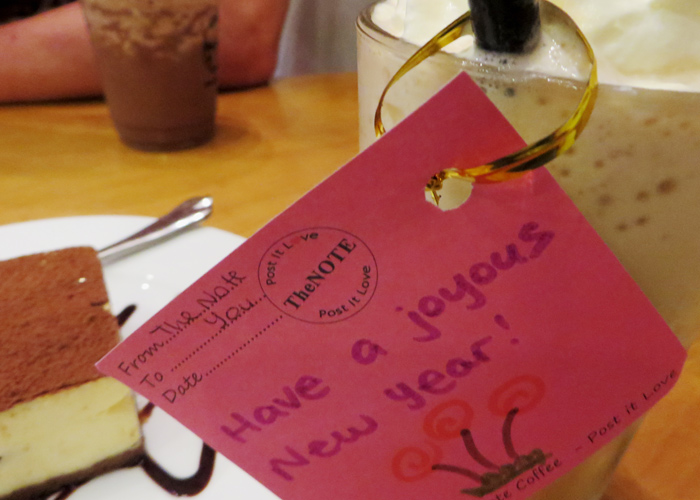 Post It Love
TheNOTE
Post It Love
From The Note
To You
Date
Have a joyous
New year!
Coffee - Post it Love